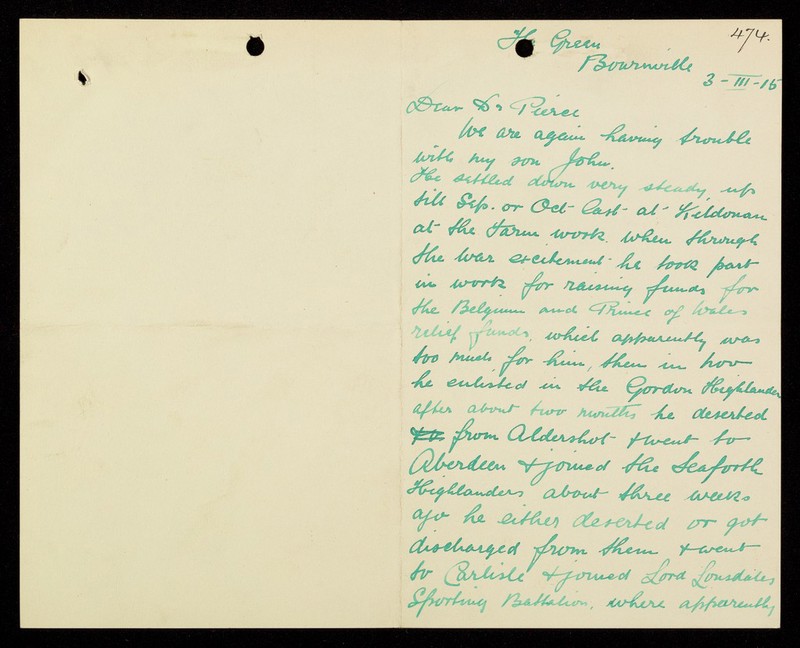 474.
The Green
Bournville
3-III-15
Dear Dr Pierce
We are again having trouble
with my son John.
He settled down very steady, up
till Sep. or Oct last at Kildonan
at the Farm work. when through
the War excitement he took part
in work for raising funds for
the Belgium and Prince of Wales
relief funds, which apparently was
too much for him, then in Nov
he enlisted in the Gordon Highlander
after about two months he deserted
from Aldershot & went to
Aberdeen & joined the Seaforth
Highlanders about three weeks
ago he either deserted or got
discharged from them & went
to Carlisle & joined Lord Lonsdales
Sporting Battalion, where apparently